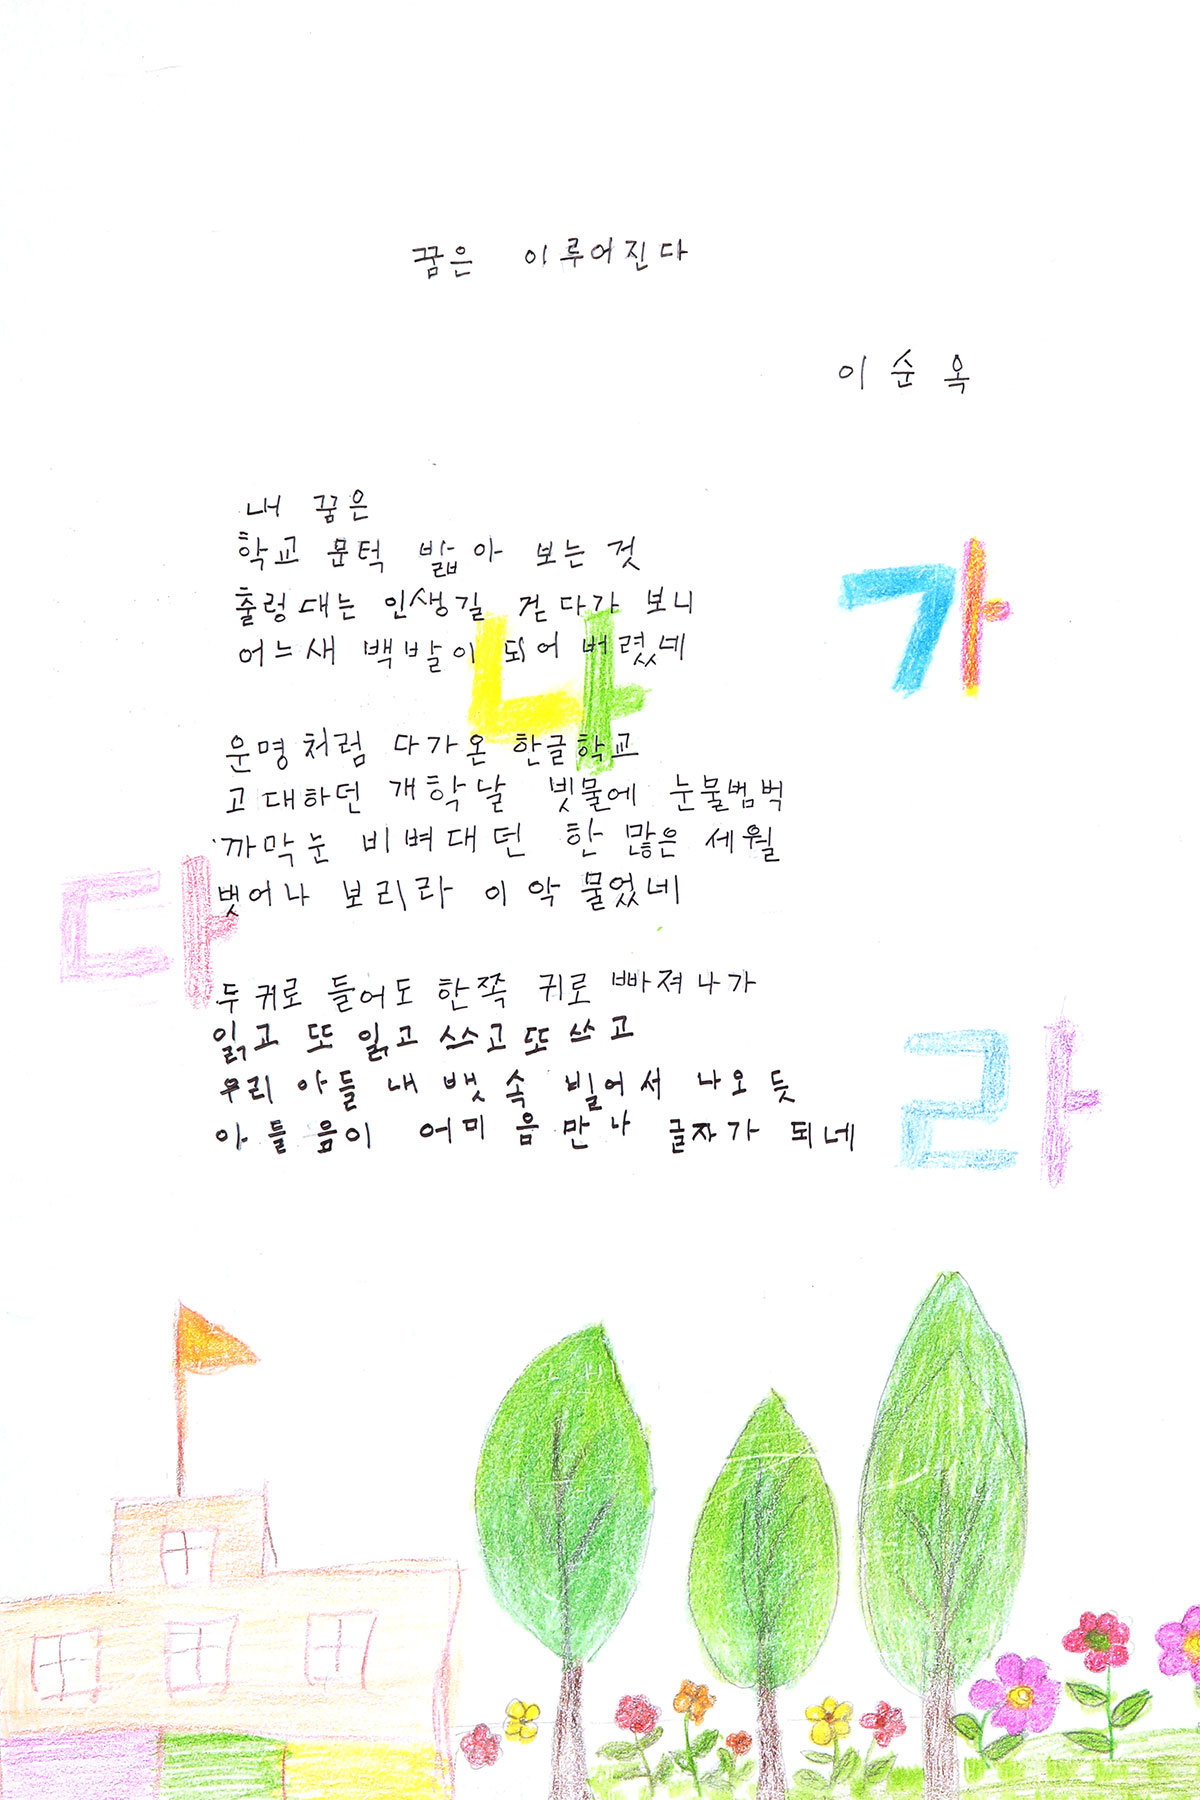 꿈은 이루어진다
이순옥
내 꿈은
학교 문턱 밟아 보는 것
출렁대는 인생길 걷다가 보니
어느새 백발이 되어 버렸네
운명처럼 다가온 한글학교
고대하던 개학날 빗물에 눈물범벅
까막눈 비벼대던 한 많은 세월
벗어나 보리라 이 악 물었네
두 귀로 들어도 한쪽 귀로 빠져나가
읽고 또 읽고 쓰고 또 쓰고
우리 아들 내 뱃속 빌어서 나오듯
아들 음이 어미 음 만나 글자가 되네
가
나
다
라